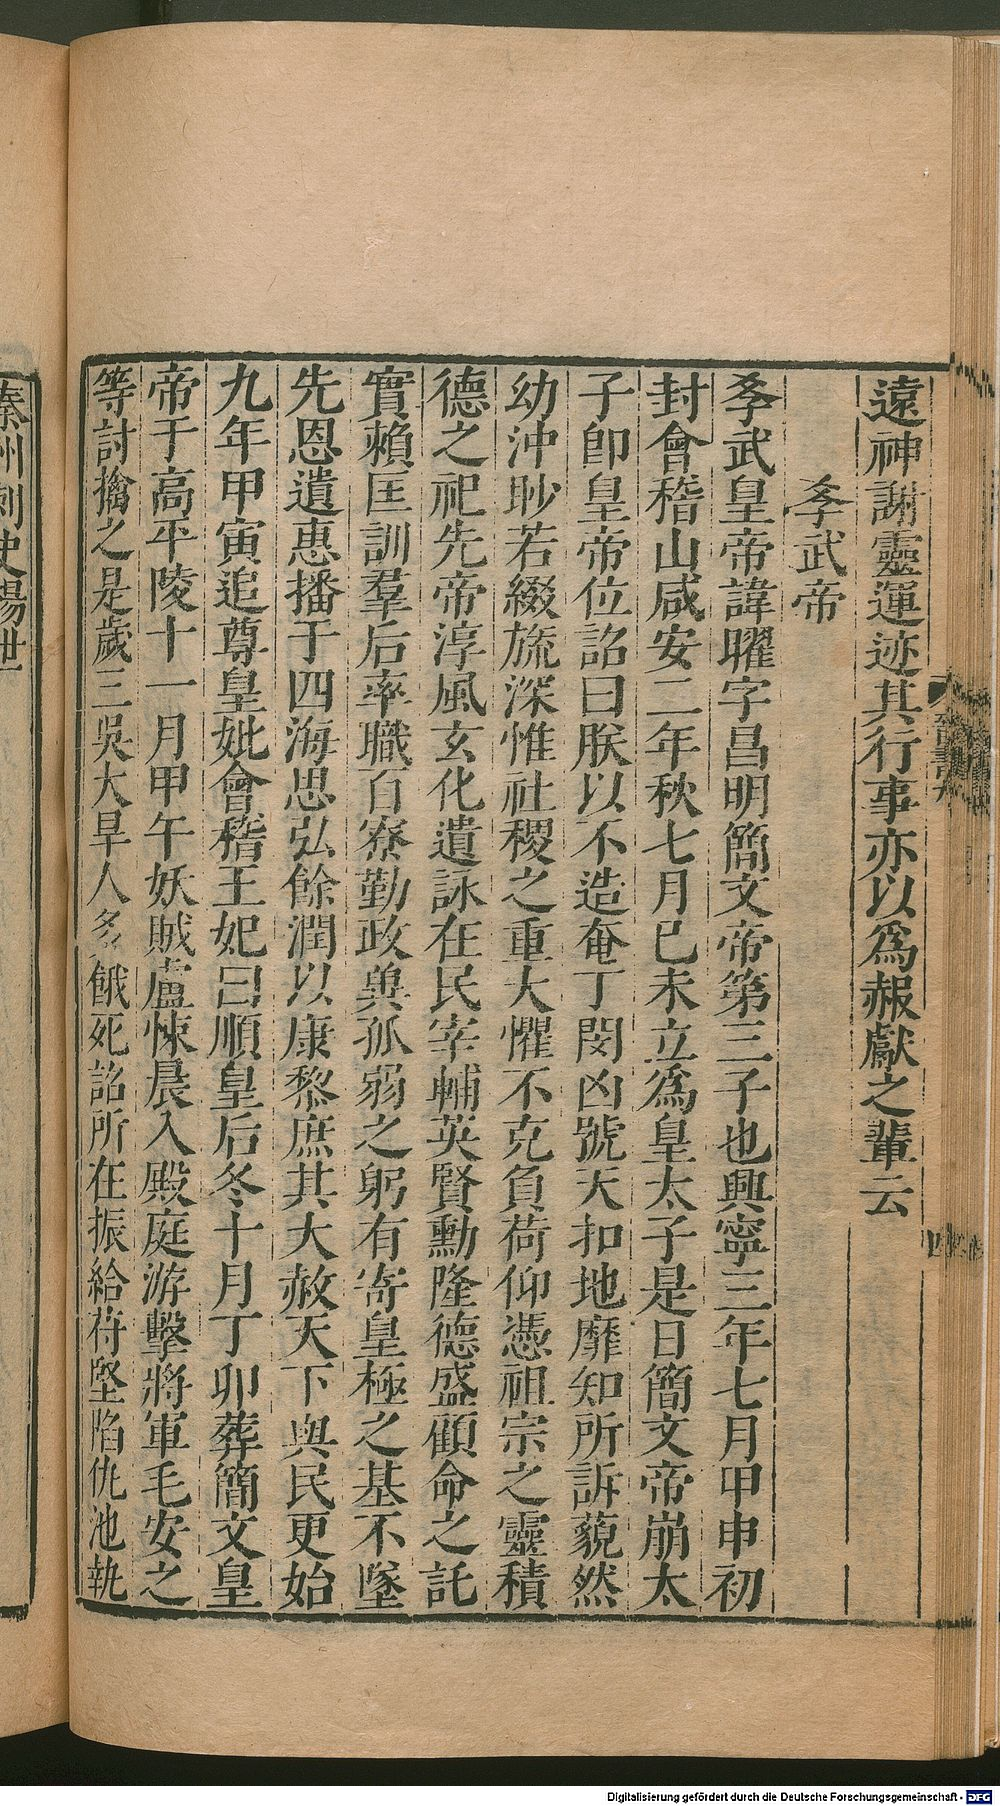 遠神謝靈運迹其行事亦以爲赧獻之輩云
孝武帝
孝武皇帝諱曜字昌明簡文帝第三子也興寧三年七月甲申初
封會稽山咸安二年秋七月己未立爲皇太子是日簡文帝崩太
子卽皇帝位詔曰朕以不造奄丁閔凶號天扣地靡知所訴藐然
幼沖眇若綴旒深惟社稷之重大懼不克負荷仰憑祖宗之靈積
德之祀先帝淳風玄化遺詠在民宰輔英賢勳隆德盛顧命之託
實賴匡訓羣后率職百寮勤政兾孤弱之躬有寄皇極之基不墜
先恩遺惠播于四海思弘餘潤以康黎庶其大赦天下與民更始
九年甲寅追尊皇妣會稽王妃曰順皇后冬十月丁卯葬簡文皇
帝于高平陵十一月甲午妖賊盧悚晨入殿庭游擊將軍毛安之
等討擒之是歲三吳大旱人多餓死詔所在振給苻堅陷仇池執
秦州刺史楊世
四
Digitalisierung gefördert durch die Deutsche Forschungsgemeinschaft - DFG